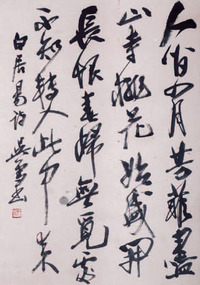 人间四月芳菲尽
山寺桃花始盛开
长恨春归无觅处
不知转入此中来
白居易诗